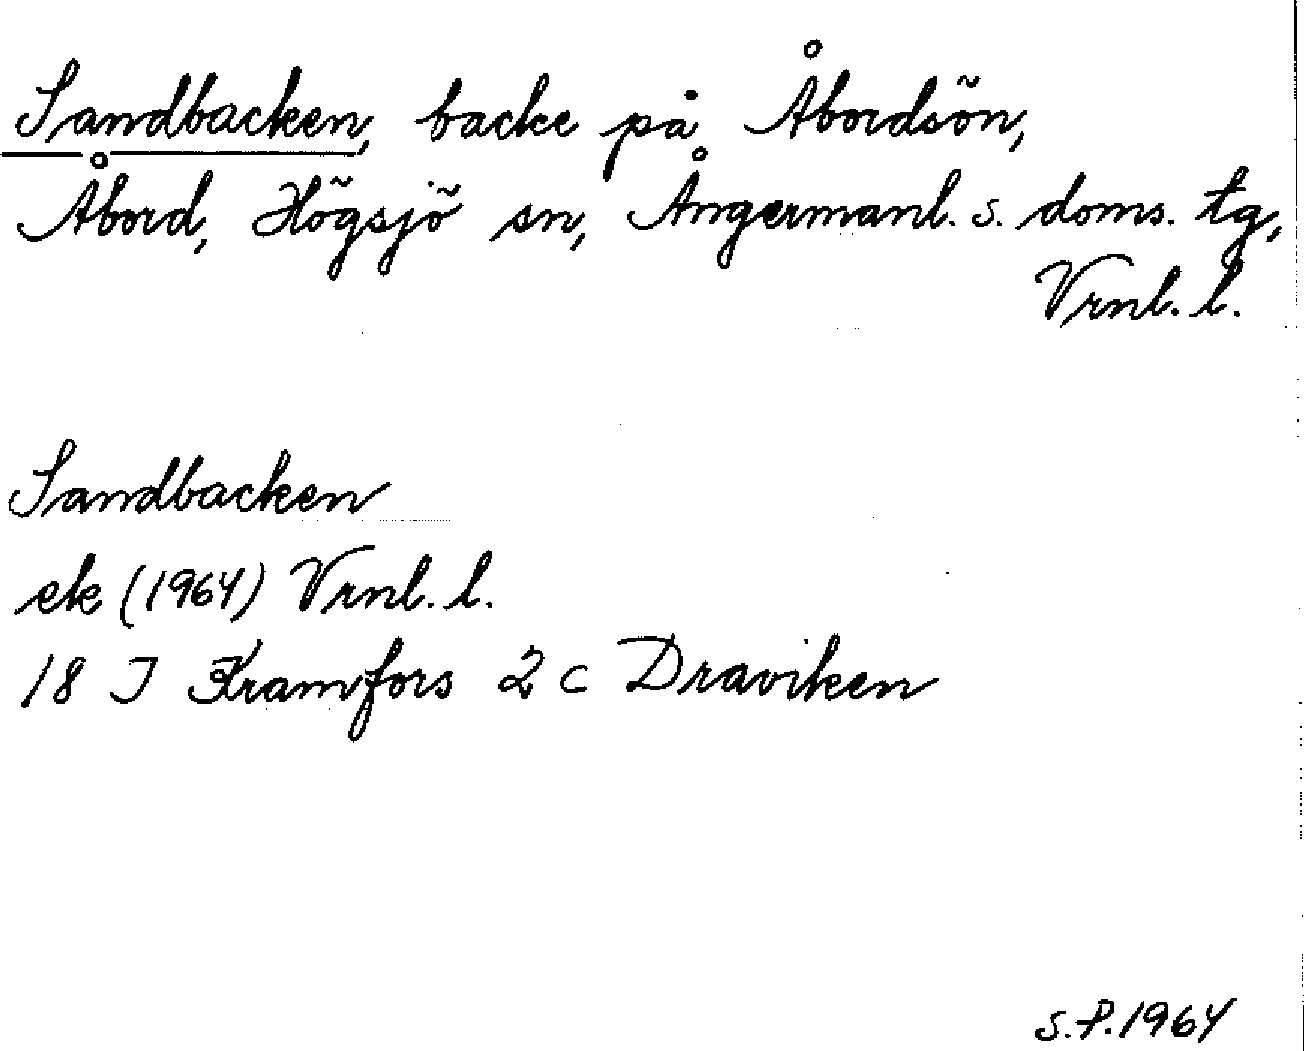 Sandbacken, backe på Åbordsön,
Åbord, Högsjö sn, Ångermanl. s. doms. tg,
Vrnl. l.
Sandbacken
ek (1964) Vrnl. l.
18 J Kramfors 2 c Draviken
S.P. 1964